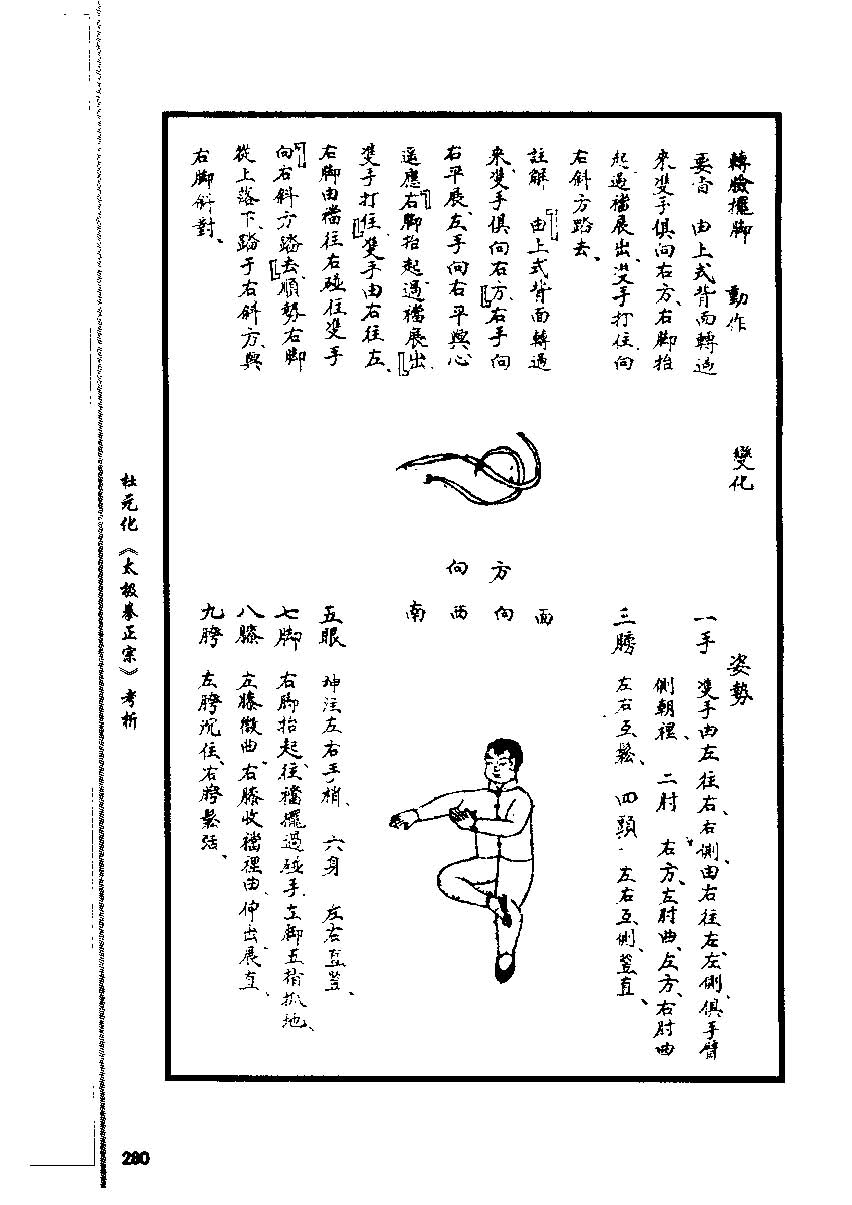 轉臉擺脚　動作
要旨　由上式背面轉過
來、雙手俱向右方、右脚抬
起過襠展出、雙手打住、向
右斜方踏去、
註解　「由上式背面轉過
來、雙手俱向右方」、右手向
右平展、左手向右平與心
遥應、「右脚抬起過襠展出」、
雙手打住「雙手由右往左、
右脚由襠往右碰住雙手
向右斜方踏去」、順勢右脚
從上落下、踏于右斜方、與
右脚斜對、
變化
方向
面向西南
姿勢
一手　雙手由左往右、右側、由右往左、左側、俱手臂
側朝裡、　二肘　右方、左肘曲、左方、右肘曲
三膀　左右互鬆、　四頭　左右互側、豎直、
五眼　神注左右手梢、　六身　左右直豎、
七脚　右脚抬起、往襠擺過碰手、左脚五指抓地、
八膝　左膝微曲、右膝收襠裡曲、伸出展直、
九胯　左胯沉住、右胯鬆活、
杜元化《太极拳正宗》考析
280